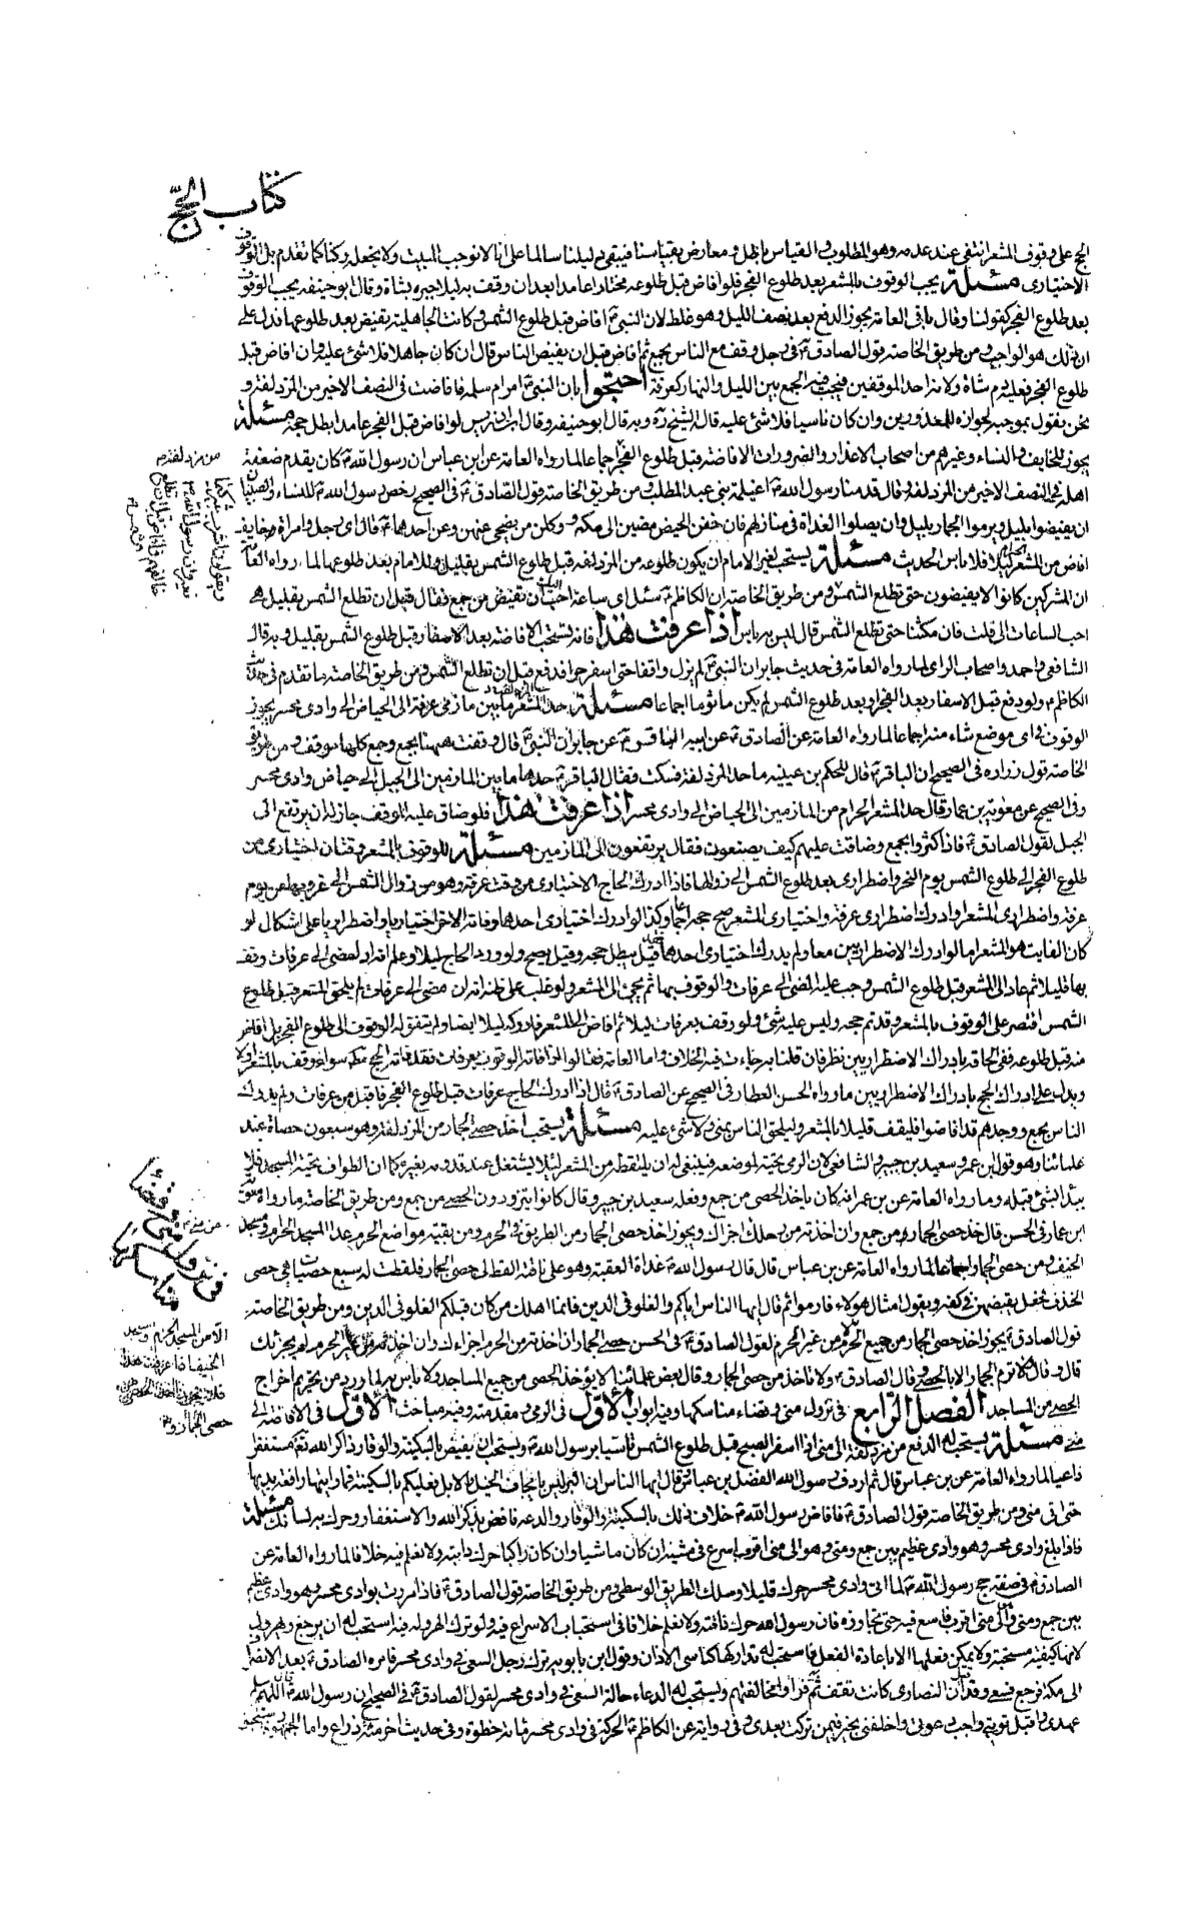 كتاب الحج
الحج على وقوف المشعر انتفى عند عدمه وهو المطلوب والقياس باطل ومعارض بقياسنا فيبقى دليلنا سالما على انا لا نوجب المبيت ولا نجعله ركنا كما تقدم بل الوقوف
الاختيارى مسئلة يجب الوقوف بالمشعر بعد طلوع الفجر فلو افاض قبل طلوعه مختارا عامدا بعد ان وقف به ليلا جبره بشاة وقال ابو حنيفه يجب الوقوف
بعد طلوع الفجر كقولنا وقال باقى العامة يجوز الدفع بعد نصف الليل وهو غلط لان النبى ص افاض قبل طلوع الشمس وكانت الجاهلية تفيض بعد طلوعها فدل على
ان ذلك هو الواجب ومن طريق الخاصة قول الصادق ع فى رجل وقف مع الناس بجمع ثم افاض قبل ان يفيض الناس قال ان كان جاهلا فلا شئ عليه وان افاض قبل
طلوع الفجر فعليه دم شاة ولانه احد الموقفين فيجب فيه الجمع بين الليل والنهار كعرفة احتجوا بان النبى ص امر ام سلمه فافاضت فى النصف الاخير من المزدلفة و
نحن نقول بموجبه لجوازه للمعذورين وان كان ناسيا فلا شئ عليه قال الشيخ ره وبه قال ابو حنيفه وقال ابن ادريس لو افاض قبل الفجر عامدا بطل حجه مسئلة
يجوز للخايف والنساء وغيرهم من اصحاب الاعذار والضرورات الافاضة قبل طلوع الفجر اجماعا لما رواه العامة عن ابن عباس ان رسول الله ص كان يقدم ضعفة
اهله فى النصف الاخير من المزدلفة وقال قدمنا رسول الله ص اغيلمة بنى عبد المطلب ومن طريق الخاصة قول الصادق ع فى الصحيح رخص رسول الله ص للنساء والصبيان
ان يفيضوا بليل ويرموا الجمار بليل وان يصلوا الغداة فى منازلهم فان خفن الحيض مضين الى مكة ووكلن من يضحى عنهن وعن احدهما ع قال اى رجل وامراة خايف
افاض من المشعر الحرام ليلا فلا باس الحديث مسئلة يستحب لغير الامام ان يكون طلوعه من المزدلفة قبل طلوع الشمس بقليل وللامام بعد طلوعها لما رواه العامة
ان المشركين كانوا لا يفيضون حتى تطلع الشمس ومن طريق الخاصة ان الكاظم ع سئل اى ساعة احب اليك ان تفيض من جمع فقال قبل ان تطلع الشمس بقليل هى
احب الساعات الى قلت فان مكثنا حتى تطلع الشمس قال ليس به باس اذا عرفت هذا فانه يستحب الافاضة بعد الاسفار وقبل طلوع الشمس بقليل وبه قال
الشافعى واحمد واصحاب الراى لما رواه العامة فى حديث جابر ان النبى ص لم يزل واقفا حتى اسفر جدا فدفع قبل ان تطلع الشمس ومن طريق الخاصة ما تقدم فى حديث
الكاظم ع ولو دفع قبل الاسفار بعد الفجر او بعد طلوع الشمس لم يكن ماثوما اجماعا مسئلة حد المشعر ما بين مازمى عرفة الى الحياض الى وادى محسر يجوز
الوقوف فى اى موضع شاء منه اجماعا لما رواه العامة عن الصادق ع عن ابيه الباقر ع عن جابر ان النبى ص قال وقفت ههنا بجمع وجمع كلها موقف ومن طريق
الخاصة قول زراره فى الصحيح ان الباقر ع قال للحكم بن عيينه ما حد المزدلفة فسكت فقال الباقر ع حدها ما بين المازمين الى الجبل الى حياض وادى محسر
وفى الصحيح عن معوية بن عمار قال حد المشعر الحرام من المازمين الى الحياض الى وادى محسر اذا عرفت هذا فلو ضاق عليه الموقف جاز له ان يرتفع الى
الجبل لقول الصادق ع فاذا كثروا بجمع وضاقت عليهم كيف يصنعون فقال يرتفعون الى المازمين مسئلة للوقوف بالمشعر وقتان اختيارى من
طلوع الفجر الى طلوع الشمس يوم النحر واضطرارى بعد طلوع الشمس الى زوالها فاذا ادرك الحاج الاختيارى من وقت عرفة وهو من زوال الشمس الى غروبها من يوم
عرفة واضطرارى المشعر او ادرك اضطرارى عرفة واختيارى المشعر صح حجه اجماعا وكذا لو ادرك اختيارى احدهما وفاته الاخر اختياريا واضطراريا على اشكال لو
كان الفايت هو المشعر اما لو ادرك الاضطراريين معا ولم يدرك اختيارى احدهما فقيل يبطل حجه وقيل يصح ولو ورد الحاج ليلا وعلم انه ادا مضى الى عرفات وقف
بها قليلا ثم عاد الى المشعر قبل طلوع الشمس وجب عليه المضى الى عرفات والوقوف بها ثم يجئ الى المشعر ولو غلب على ظنه انه ان مضى الى عرفات لم يلحق المشعر قبل طلوع
الشمس اقتصر على الوقوف بالمشعر وقد تم حجه وليس عليه شئ ولو وقف بعرفات ليلا ثم افاض الى المشعر فادركه ليلا ايضا ولم يتفق له الوقوف الى طلوع الفجر بل افاض
منه قبل طلوعه ففى الحاقه بادراك الاضطراريين نظر فان قلنا به جاءت فيه الخلاف واما العامة فقالوا اذا فاته الوقوف بعرفات فقد فاته الحج مطلقا سواء وقف بالمشعر او لا
ويدل على ادراك الحج بادراك الاضطراريين ما رواه الحسن العطار فى الصحيح عن الصادق ع قال اذا ادرك الحاج عرفات قبل طلوع الفجر فاقبل من عرفات ولم يدرك
الناس بجمع ووجدهم قد افاضوا فليقف قليلا بالمشعر وليلحق الناس بمنى ولا شئ عليه مسئلة يستحب اخذ حصى الجمار من المزدلفة وهو سبعون حصاة عند
علمائنا وهو قول ابن عمر وسعيد بن جبير والشافعى لان الرمى تحية لموضعه فينبغى له ان يلتقطه من المشعر لئلا يشتغل عند قدومه بغيره كما ان الطواف تحية المسجد فلا
يبدا بشئ قبله وما رواه العامة عن بن عمر انه كان ياخذ الحصى من جمع وفعله سعيد بن جبير وقال كانوا يتزودون الحصى من جمع ومن طريق الخاصة ما رواه معوية
ابن عمار فى الحسن قال خذ حصى الجمار من جمع وان اخذته من رحلك اجزاك ويجوز اخذ حصى الجمار من الطريق فى الحرم ومن بقية مواضع الحرم عدا المسجد الحرام ومسجد
الخيف ومن حصى الجمار اجماعا لما رواه العامة عن بن عباس قال قال رسول الله ص غداة العقبة وهو على ناقته القط لى حصى الجمار فلقطت له سبع حصيات هى حصى
الخذف فجعل يقبضهن فى كفه ويقول امثال هولاء فارموا ثم قال ايها الناس اياكم والغلو فى الدين فانما اهلك من كان قبلكم الغلو فى الدين ومن طريق الخاصة
قول الصادق ع يجوز اخذ حصى الجمار من جميع الحرم لا من غير الحرم لقول الصادق ع فى الحسن حصى الجمار ان اخذته من الحرم اجزاءك وان اخذته من غير الحرم لم يجزئك
قال وقال لا ترم الجمار الا بالحصى وقال الصادق ع ولا تاخذ من حصى الجمار وقال بعض علمائنا لا يؤخذ الحصى من جميع المساجد ولا باس به لما ورد من تحريم اخراج
الحصى من المساجد الفصل الرابع فى نزول منى وقضاء مناسكها وفيه ابواب الاول فى الرمى ومقدمته وفيه مباحث الاول فى الافاضة الى
منى مسئلة يستحب له الدفع من مزدلفة الى منى اذا اسفر الصبح قبل طلوع الشمس تاسيا برسول الله ص ويستحب ان يفيض بالسكينة والوقار ذاكرا لله تعالى مستغفرا
داعيا لما رواه العامة عن بن عباس قال ثم اردف رسول الله الفضل بن عباس وقال ايها الناس ان البر ليس بايجاف الخيل والابل فعليكم بالسكينة فما رايتها رافعة يديها
حتى اتى منى ومن طريق الخاصة قول الصادق ع فافاض رسول الله ص خلاف ذلك بالسكينة والوقار والدعه فافض بذكر الله والاستغفار وحرك به لسانك مسئلة
فاذا بلغ وادى محسر وهو وادى عظيم بين جمع ومنى وهو الى منى اقرب اسرع فى مشيه ان كان ماشيا وان كان راكبا حرك دابته ولا نعلم فيه خلافا لما رواه العامة عن
الصادق ع فى صفة حج رسول الله ص لما اتى وادى محسر حرك قليلا وسلك الطريق الوسطى ومن طريق الخاصة قول الصادق ع فاذا مررت بوادى محسر وهو وادى عظيم
بين جمع ومنى وهو الى منى اقرب فاسع فيه حتى تجاوزه فان رسول الله حرك ناقته ولا نعلم خلافا فى استحباب الاسراع فيه ولو ترك الهرولة فيه استحب له ان يرجع ويهرول
لانها كيفية مستحبة ولا يمكن فعلها الا باعادة الفعل فاستحب له تداركها كناسى الاذان وقول ابن بابويه ترك رجل السعى فى وادى محسر فامره الصادق ع بعد الانصراف
الى مكة فرجع فسعى وقد قيل ان النصارى كانت تقف ثم فراوا مخالفتهم ويستحب له الدعاء حالة السعى فى وادى محسر لقول الصادق ع فى الصحيح ان رسول الله ص قال اللهم سلم
عهدى واقبل توبتى واجب دعوتى واخلفنى بخير فيمن تركت بعدى وفى رواية عن الكاظم ع الحركة فى وادى محسر مائة خطوة وفى حديث اخر مائة ذراع واما الجمهور فاستحبوا
من مزدلفة م
خالفهم فافاض قبل ان تطلع
فى نزول منى وقضاء
مناسكها
من منى م
الا من المسجد الحرام ومسجد
الخيف اذا عرفت هذا
فلا يجوز اخذ الحصى من
حصى الجمار